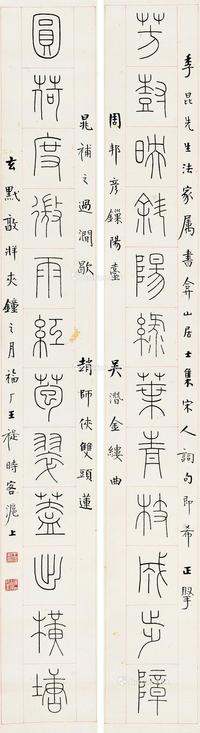 季昆先生法家属書弇山居士集宋人詞句即希正擘
芳尌映斜陽綠葉青枝成步障
周邦彦鏁陽臺 吳潛金縷曲
晁補之過澗歇 趙師俠雙頭蓮
圓荷度微雨紅苞翠蓋出橫塘
玄黓敦牂夾鐘之月福厂王禔時客滬上